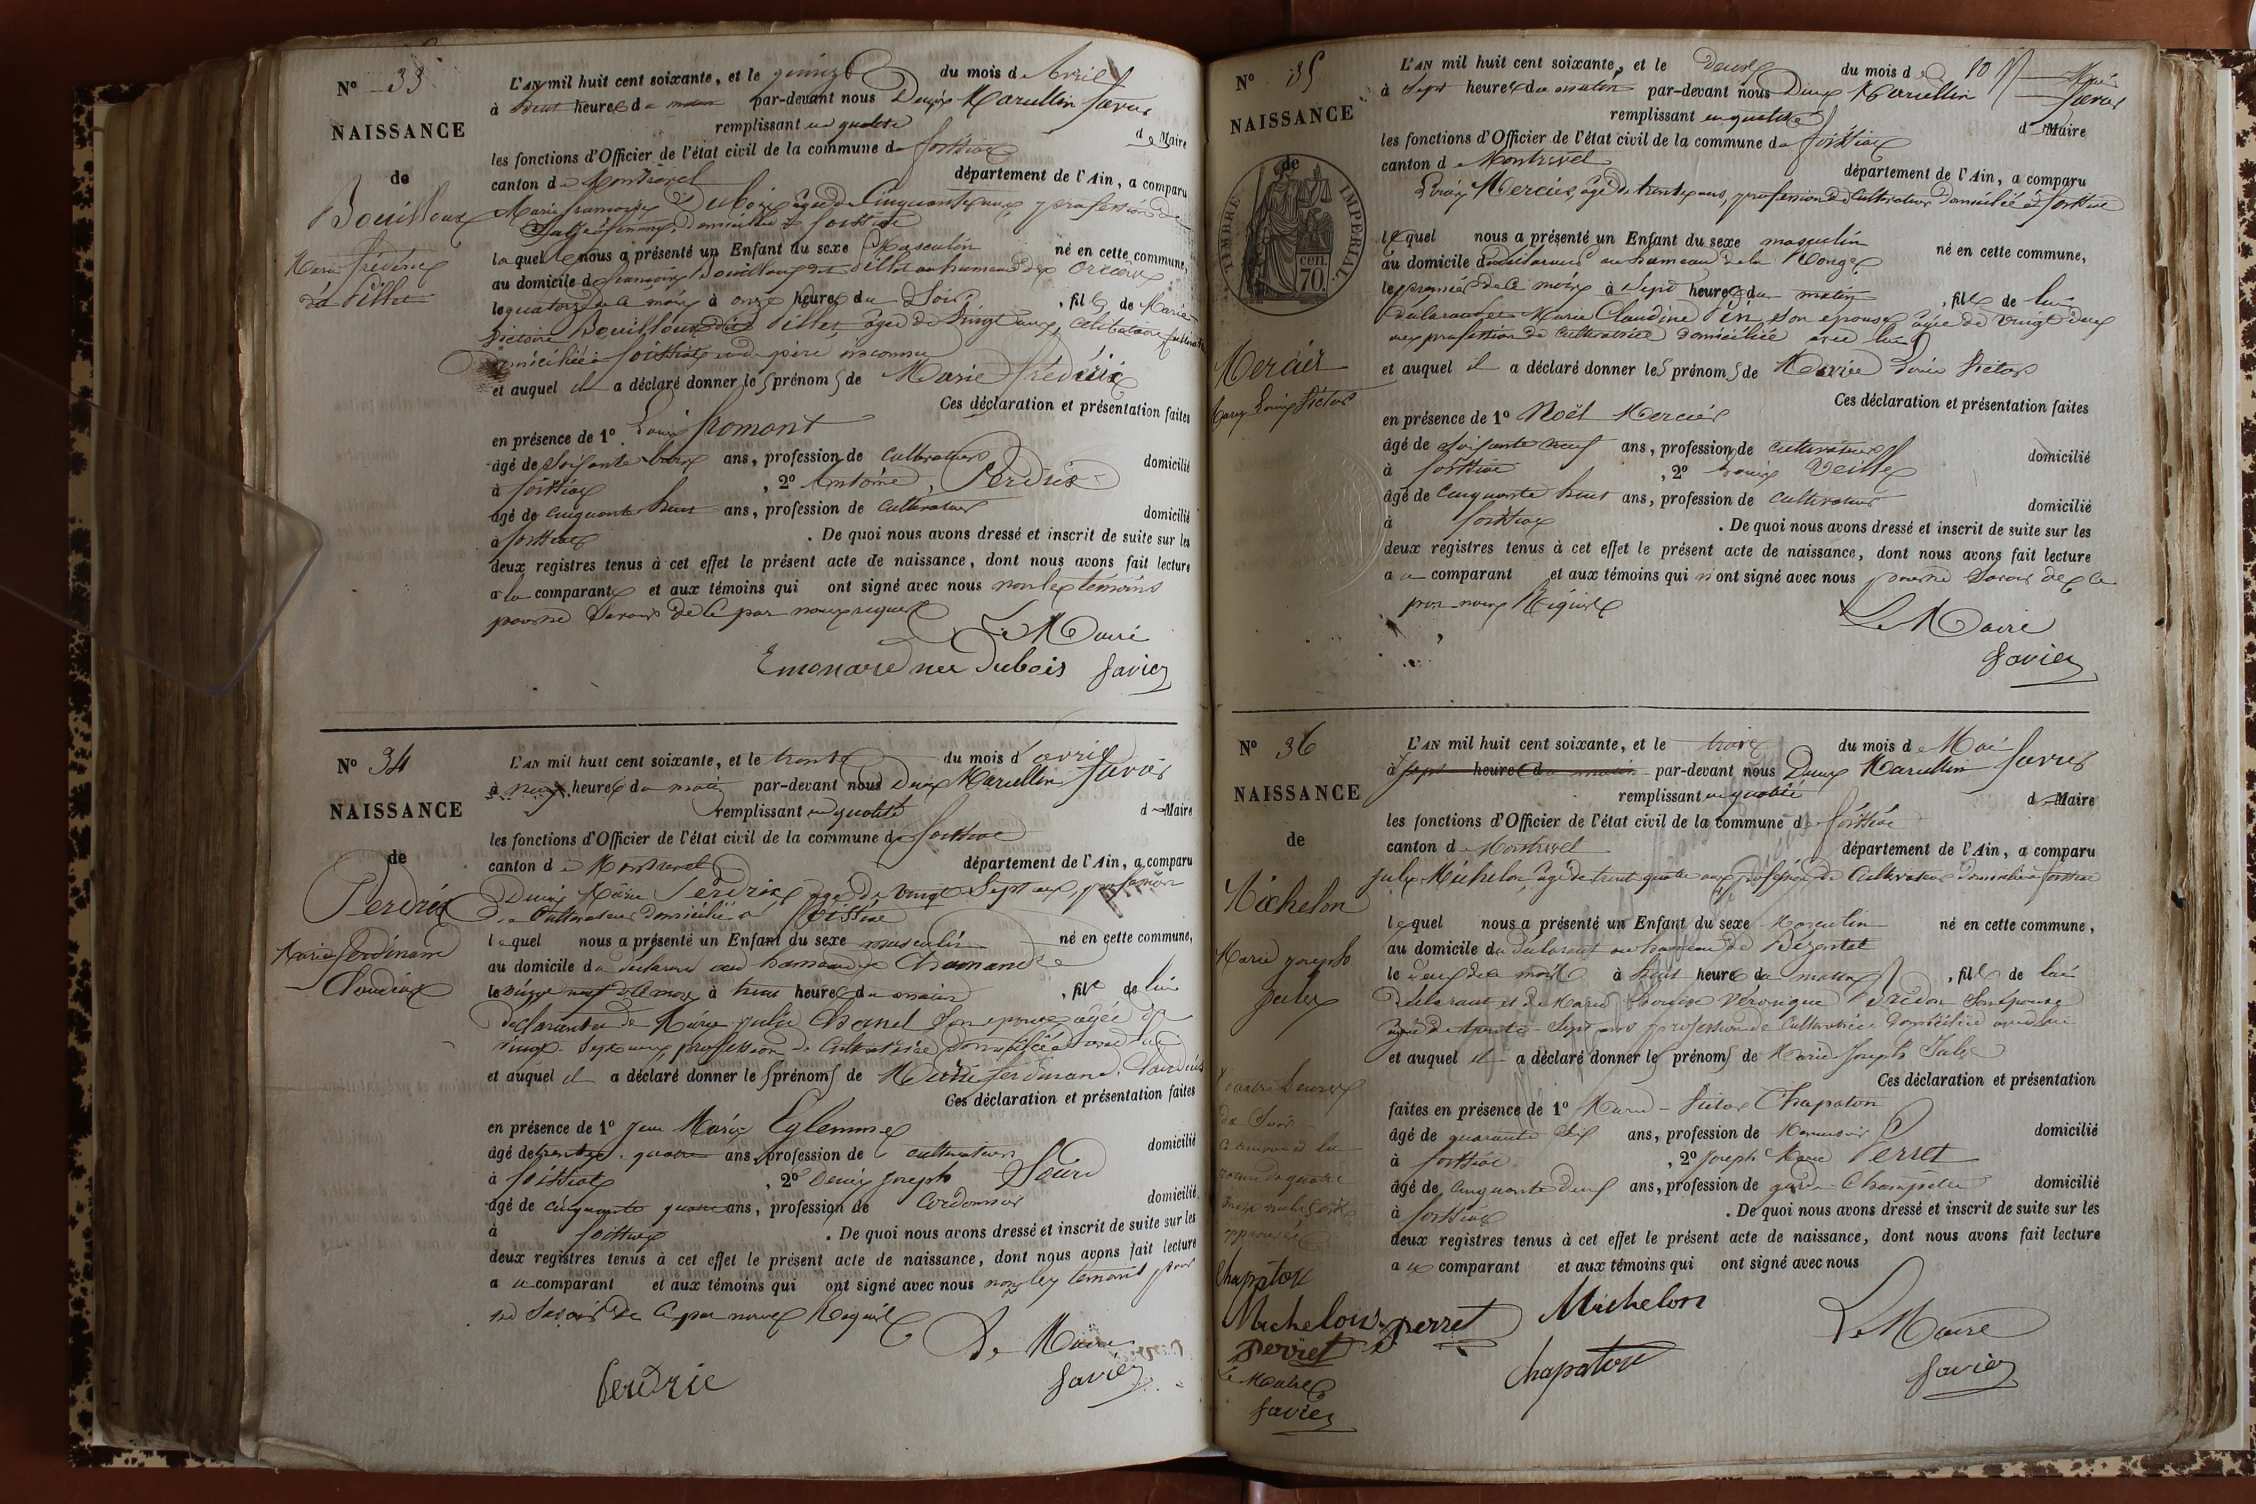 N° 33
NAISSANCE
de
Bouilloux
Marie frédéric
dit Pillet
L'AN mil huit cent soixante, et le quinze du mois d Avril
à heures du matin par-devant nous Denis Marcellin favier
remplissant en qualité d e Maire
les fonctions d'Officier de l'état civil de la commune de foissiat
canton de Montrevel département de l'Ain, a comparu
Marie françoise Dubois âgée de Cinquante ans, profession de
Sage femme, domiciliée à foissiat
laquelle nous a présenté un Enfant du sexe Masculin né en cette commune,
au domicile de françois Bouilloux dit Pillet au hameau des
le quatorze de ce mois à onze heures du Soir, fils de Marie
Victoire Bouilloux dit Pillet âgée de vingt ans, célibataire
domiciliée à foissiat et de père inconnu
et auquel il a déclaré donner les prénoms de Marie frédéric
Ces déclaration et présentation faites
en présence de 1° Louis fromont
âgé de soixante ans, profession de cultivateur domicilié
à foissiat, 2° Antoine Perdrix
âgé de cinquante huit ans, profession de cultivateur domicilié
à foissiat. De quoi nous avons dressé et inscrit de suite sur les
deux registres tenus à cet effet le présent acte de naissance, dont nous avons fait lecture
a la comparante et aux témoins qui ont signé avec nous non les témoins
pour ne Savoir de ce par nous requis
Le Maire
Emonard nee Dubois favier
N° 34
NAISSANCE
de
Perdrix
Marie ferdinand
Claudius
L'AN mil huit cent soixante, et le trente du mois d'avril
à heures du matin par-devant nous Denis Marcellin favier
remplissant en qualité d e Maire
les fonctions d'Officier de l'état civil de la commune de foissiat
canton de Montrevel département de l'Ain, a comparu
Denis Marie Perdrix, âgé de vingt Sept ans, profession
de Cultivateur domicilié à foissiat
lequel nous a présenté un Enfant du sexe masculin né en cette commune,
au domicile du déclarant au hameau de Chamandre
le vingt neuf de ce mois à huit heures du matin, fils de lui
déclarant et de Marie julie Chanel son épouse âgée de
vingt Sept ans, profession de Cultivatrice domiciliée avec lui
et auquel il a déclaré donner les prénoms de Marie ferdinand Claudius
Ces déclaration et présentation faites
en présence de 1° jean Marie Eglemme
âgé de trente quatre ans, profession de cultivateur domicilié
à foissiat, 2° Denis joseph Sourd
âgé de cinquante quatre ans, profession de Cordonnier domicilié
à foissiat. De quoi nous avons dressé et inscrit de suite sur les
deux registres tenus à cet effet le présent acte de naissance, dont nous avons fait lecture
a u comparant et aux témoins qui ont signé avec nous non les témoins pour
ne Savoir de ce par nous Requis
Le Maire
Perdrix favier
N° 35
NAISSANCE
de
TIMBRE IMPERIAL
70 cen.
Mercier
Marie Louis Victor
L'AN mil huit cent soixante, et le deux du mois de Mai
à Sept heures du matin par-devant nous Denis Marcellin favier
remplissant en qualité d e Maire
les fonctions d'Officier de l'état civil de la commune de foissiat
canton de Montrevel département de l'Ain, a comparu
Mercier, âgé de trente ans, profession de Cultivateur domicilié à foissiat
lequel nous a présenté un Enfant du sexe masculin né en cette commune,
au domicile du déclarant au hameau de la
le premier de ce mois à Sept heures du matin, fils de lui
déclarant et de Marie Claudine Pin, son épouse âgée de vingt deux
ans profession de cultivatrice domiciliée avec lui
et auquel il a déclaré donner les prénoms de Marie Louis Victor
Ces déclaration et présentation faites
en présence de 1° Noël Mercier
âgé de soixante neuf ans, profession de cultivateur domicilié
à foissiat, 2° Louis
âgé de Cinquante huit ans, profession de cultivateur domicilié
à foissiat. De quoi nous avons dressé et inscrit de suite sur les
deux registres tenus à cet effet le présent acte de naissance, dont nous avons fait lecture
a u comparant et aux témoins qui n'ont signé avec nous pour ne Savoir de ce
par nous Requis
Le Maire
favier
N° 36
NAISSANCE
de
Michelon
Marie joseph
jules
L'AN mil huit cent soixante, et le trois du mois de Mai
à Sept heures du matin par-devant nous Denis Marcellin favier
remplissant en qualité d e Maire
les fonctions d'Officier de l'état civil de la commune de foissiat
canton de Montrevel département de l'Ain, a comparu
jules Michelon, âgé de trente quatre ans, profession de Cultivateur domicilié à foissiat
lequel nous a présenté un Enfant du sexe Masculin né en cette commune,
au domicile du déclarant au hameau de Bezentet
le deux de ce mois à huit heures du matin, fils de lui
déclarant et de Marie Louise Véronique Perdon Son épouse
âgée de trente Sept ans profession de Cultivatrice domiciliée avec lui
et auquel il a déclaré donner les prénoms de Marie Joseph Jules
Ces déclaration et présentation
faites en présence de 1° Marie Victor Chapaton
âgé de quarante Six ans, profession de Menuisier domicilié
à foissiat, 2° joseph Marie Perret
âgé de cinquante deux ans, profession de garde Champêtre domicilié
à foissiat. De quoi nous avons dressé et inscrit de suite sur les
deux registres tenus à cet effet le présent acte de naissance, dont nous avons fait lecture
a u comparant et aux témoins qui ont signé avec nous
Chapaton
Michelon
perret
Le Maire
favier
perret Michelon
Chapaton
Le Maire
favier